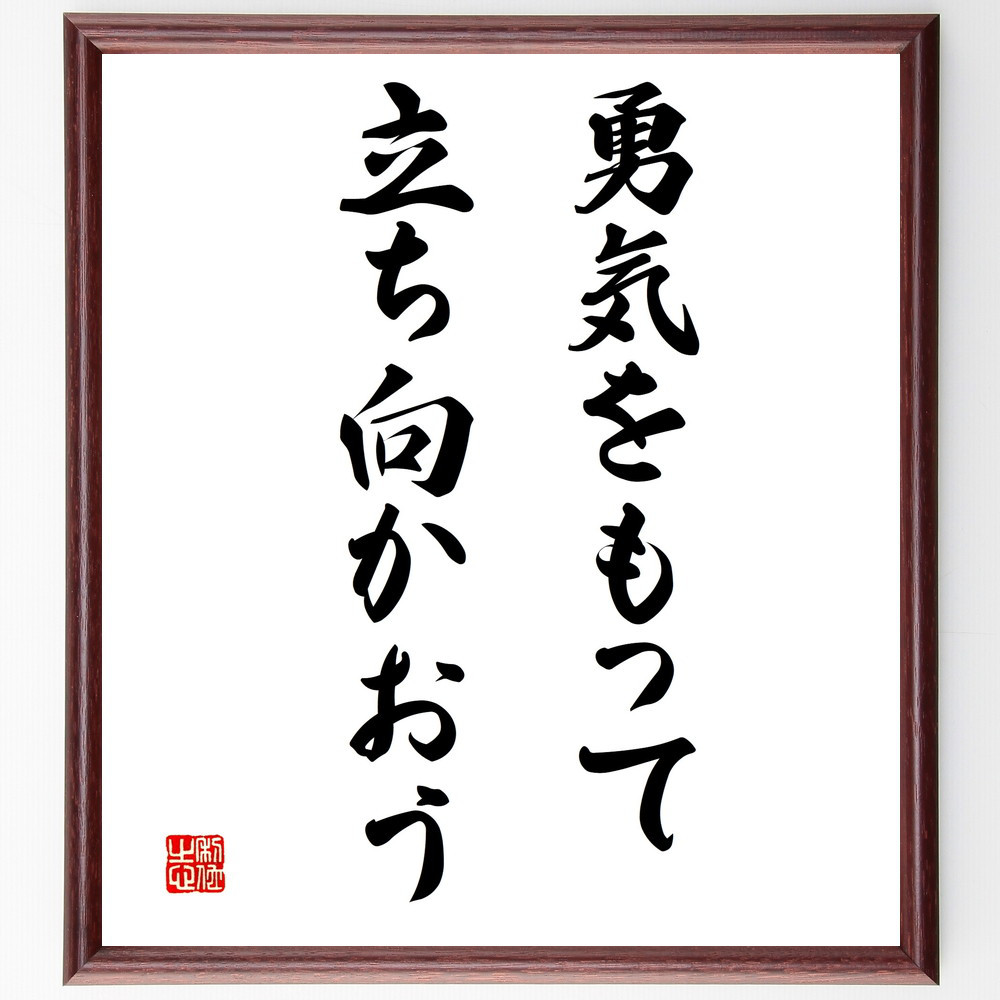 勇気をもって
立ち向かおう